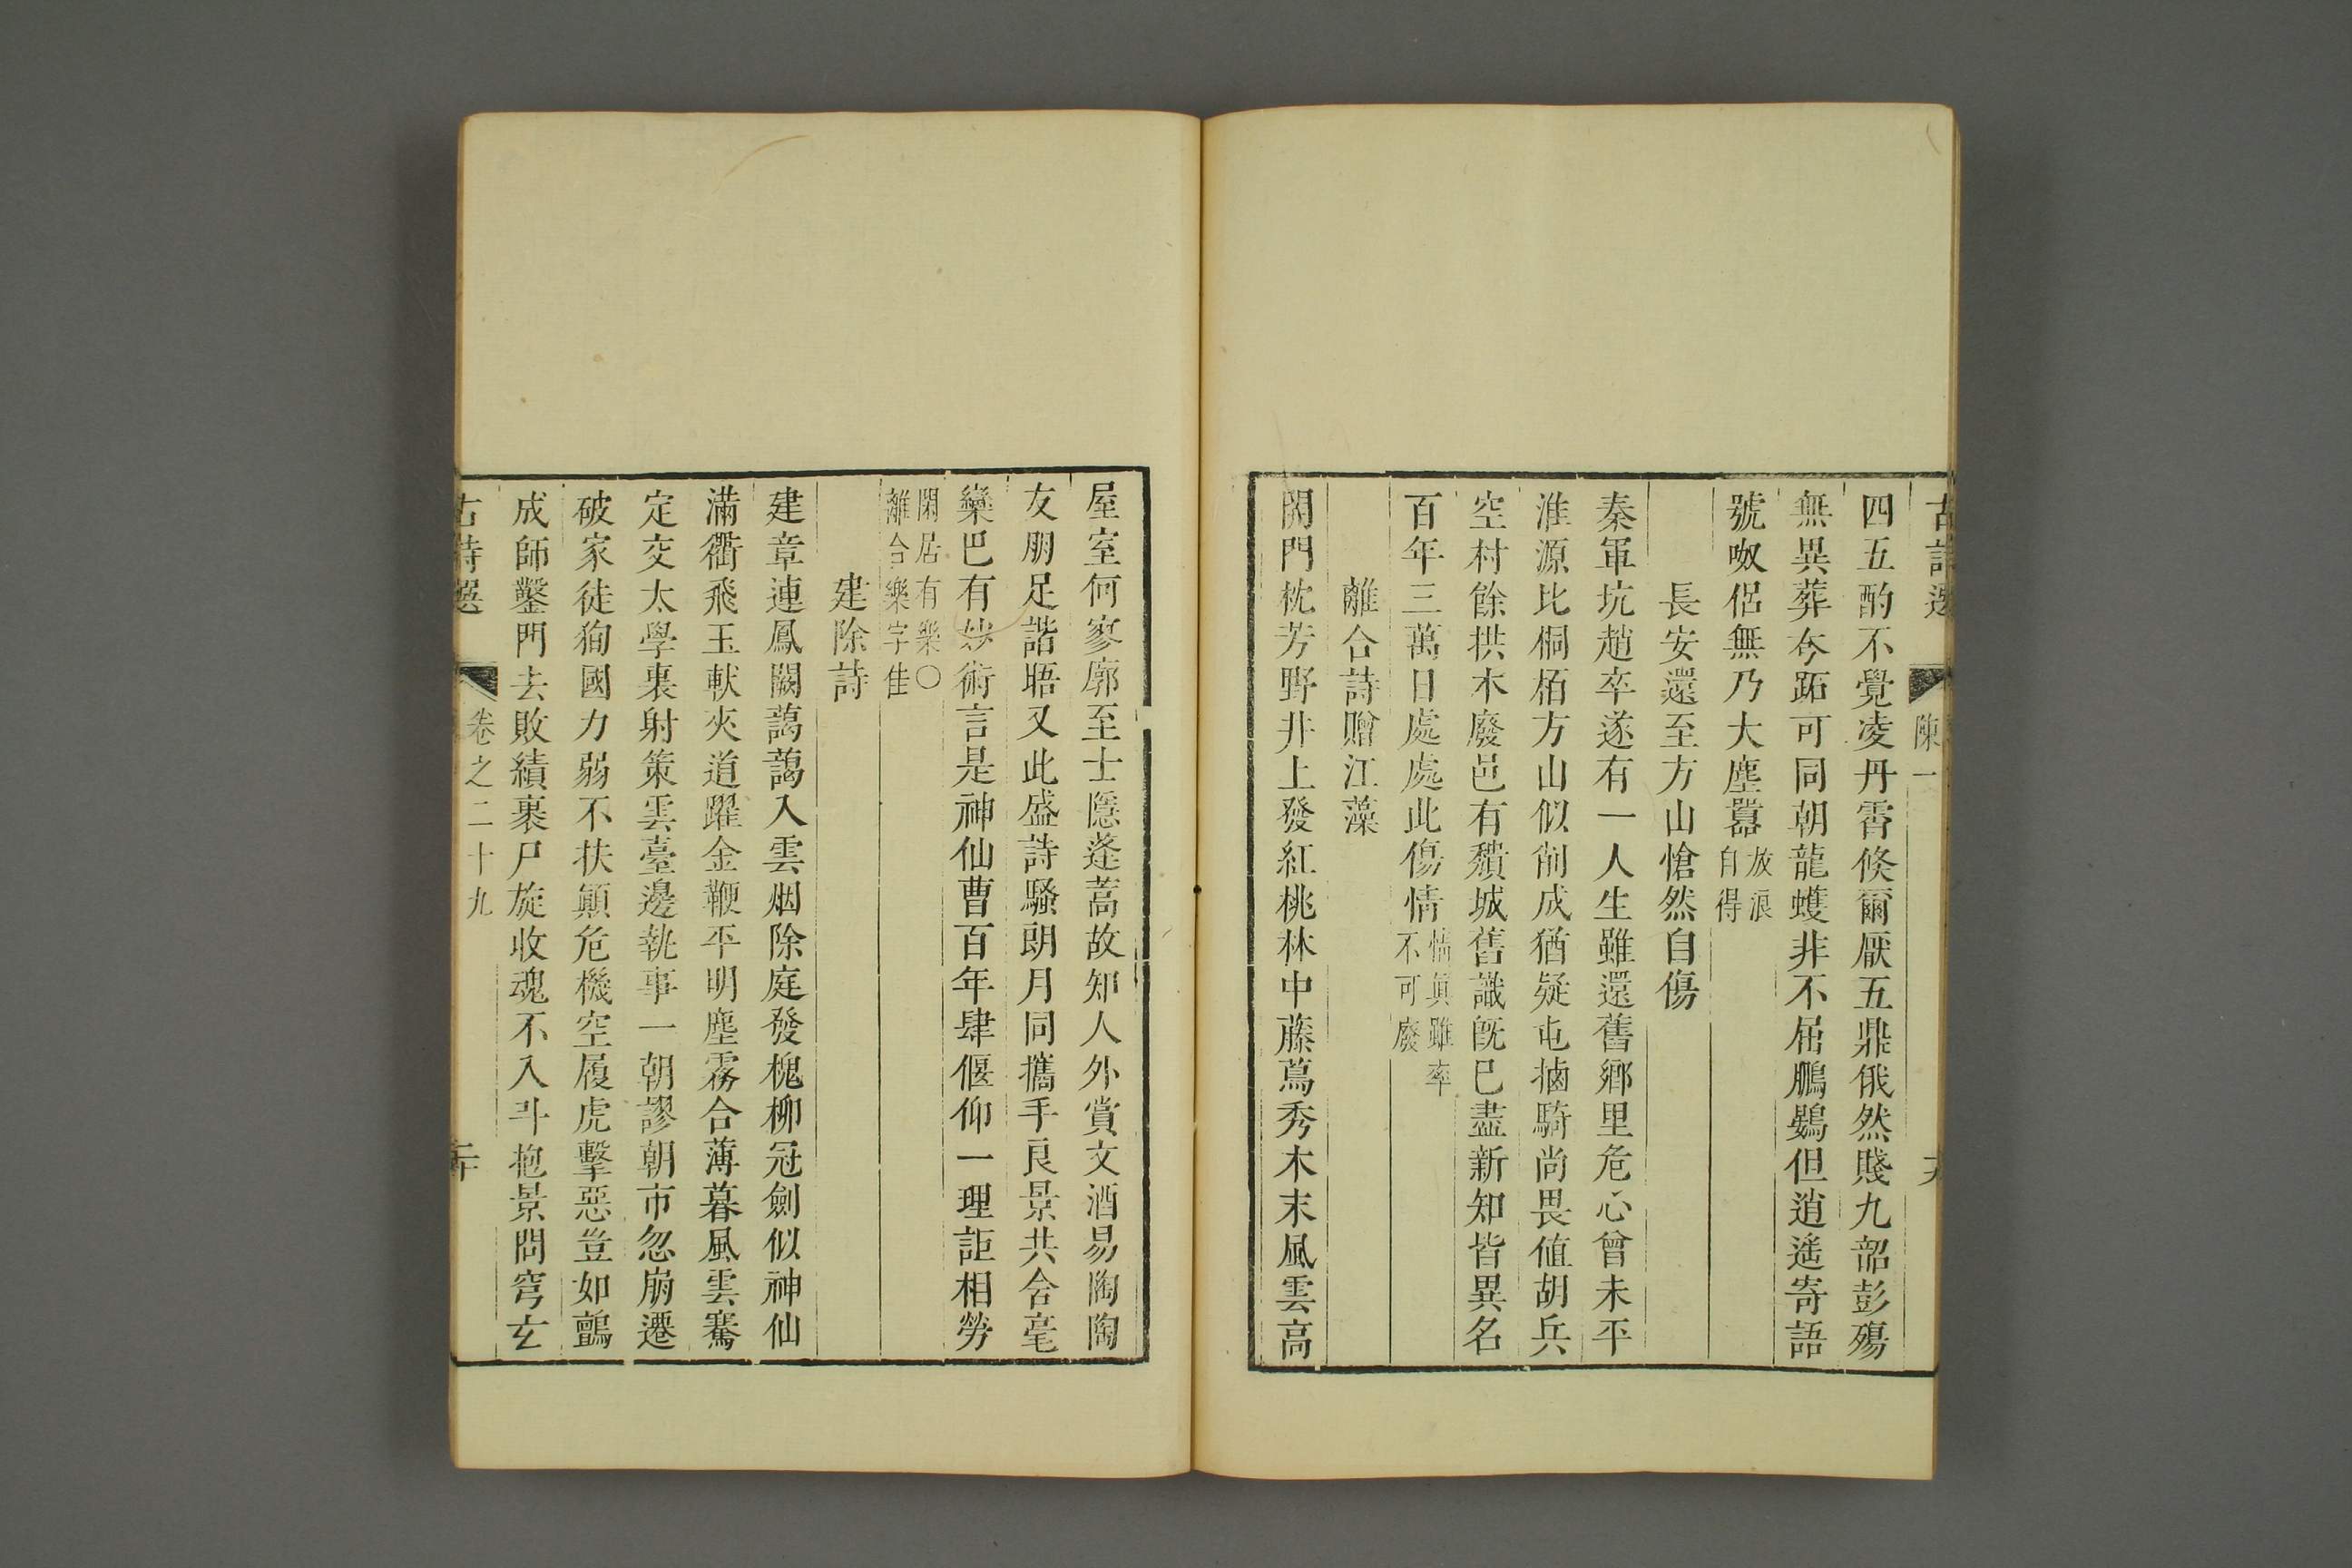 古詩選 陳一
四五酌不覺凌丹霄倐爾厭五鼎俄然賤九韶彭殤
無異葬夸跖可同朝龍蠖非不屈鵬鷃但逍遙寄語
號呶侶無乃大塵囂放浪
自得
長安還至方山愴然自傷
秦軍坑趙卒遂有一人生雖還舊鄉里危心曾未平
淮源比桐栢方山似削成猶疑屯擄騎尚畏値胡兵
空村餘拱木廢邑有頽城舊識旣已盡新知皆異名
百年三萬日處處此傷情情眞雖率
不可廢
離合詩贈江藻
開門枕芳野井上發紅桃林中藤蔦秀木末風雲高
屋室何寥廓至士隱蓬蒿故知人外賞文酒易陶陶
友朋足諧晤又此盛詩騷朗月同攜手良景共含毫
欒巴有妙術言是神仙曹百年肆偃仰一理詎相勞
閑居有樂〇
離合樂字佳
建除詩
建章連鳳闕藹藹入雲烟除庭發槐柳冠劍似神仙
滿衢飛玉軑夾道躍金鞭平明塵霧合薄暮風雲騫
定交太學裏射策雲臺邊執事一朝謬朝市忽崩遷
破家徒狥國力弱不扶顚危機空履虎擊惡豈如鸇
成師鑿門去敗績裹尸旋收魂不入斗抱景問穹玄
古詩選 卷之二十九 二十